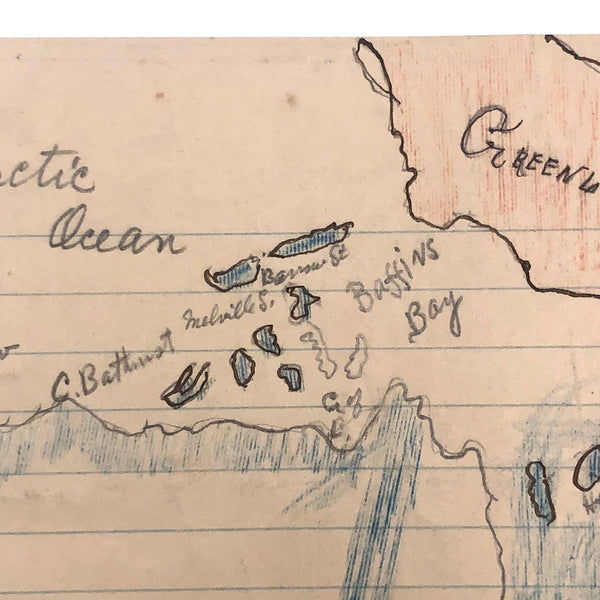 Greenl
ctic
Ocean
Barrow St
Baffins
Bay
Melville S.
C. Bathurst
G. of